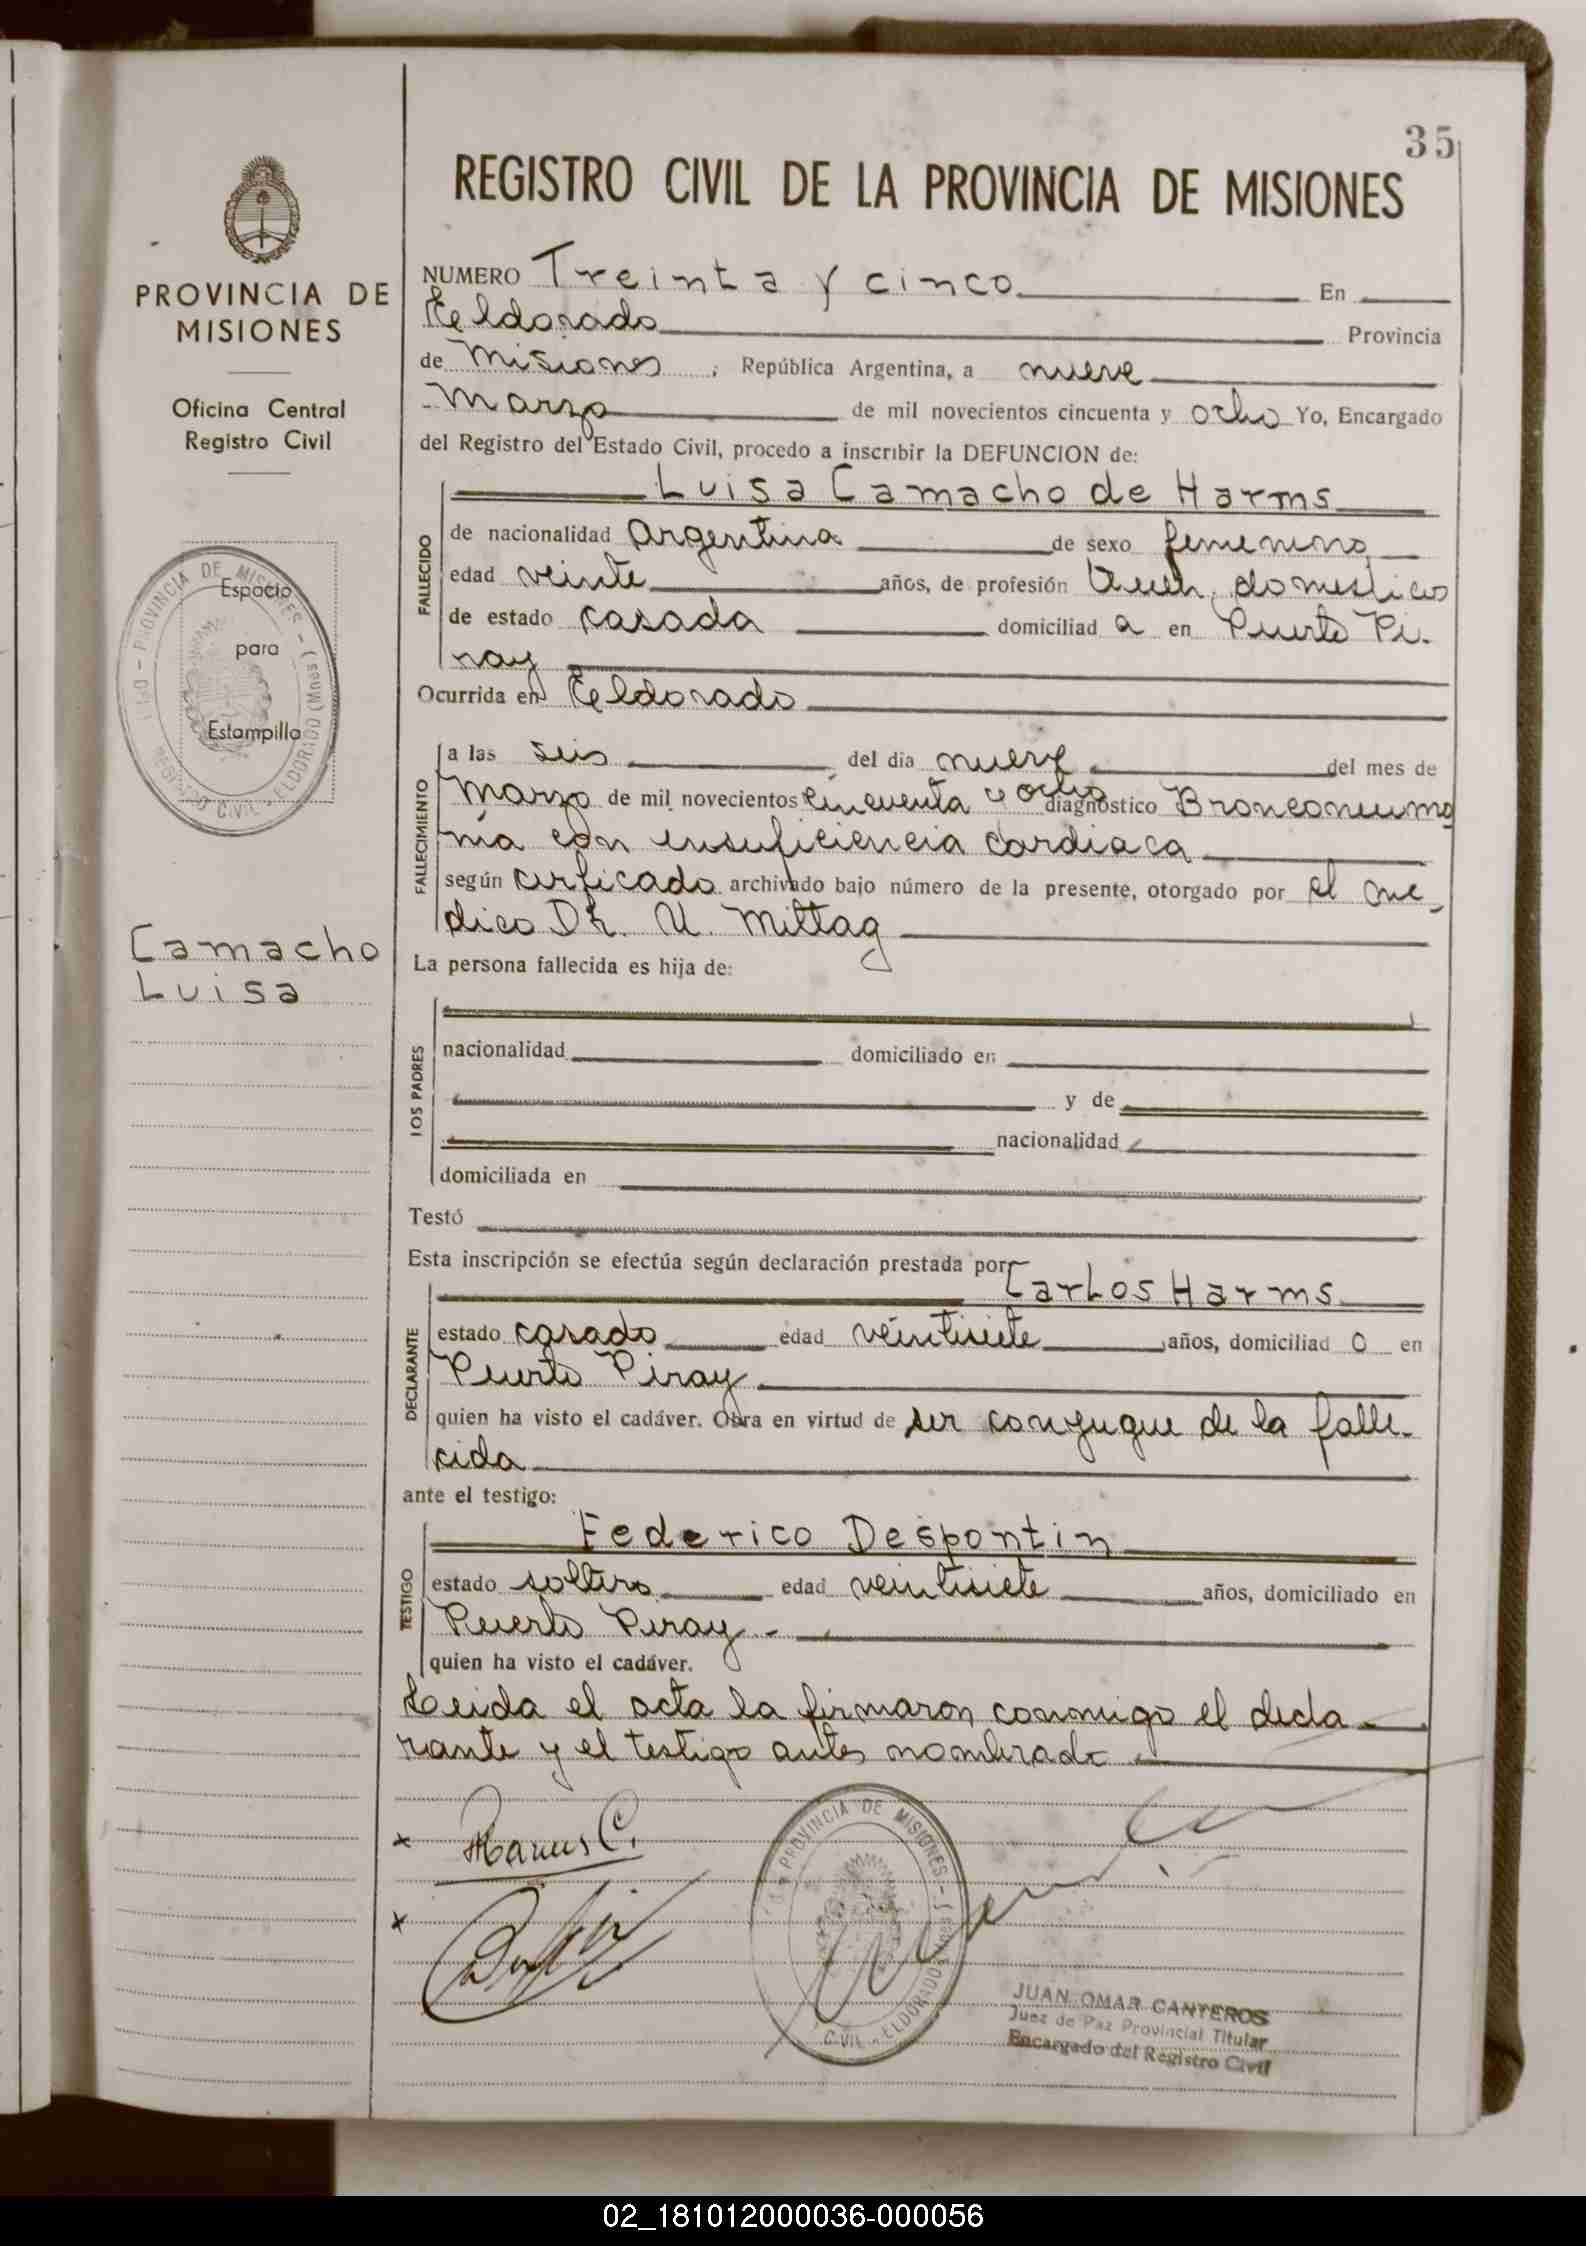 35
REGISTRO CIVIL DE LA PROVINCIA DE MISIONES
PROVINCIA DE
MISIONES
Oficina Central
Registro Civil
Espacio
para
Estampilla
PROVINCIA DE MISIONES - ELDORADO (Mnes)
REGISTRO CIVIL
Camacho
Luisa
NUMERO Treinta y cinco En
Eldorado Provincia
de Misiones, República Argentina, a nueve
Marzo de mil novecientos cincuenta y ocho Yo, Encargado
del Registro del Estado Civil, procedo a inscribir la DEFUNCION de:
FALLECIDO
Luisa Camacho de Harms
de nacionalidad Argentina de sexo femenino
edad veinte años, de profesión domesticos
de estado casada domiciliad a en Puerto Pi-
ray
Ocurrida en Eldorado
FALLECIMIENTO
a las seis del dia nueve del mes de
Marzo de mil novecientos cincuenta y ocho diagnóstico Bronconeumo
nia con insuficiencia cardiaca
según cerficado archivado bajo número de la presente, otorgado por el me-
dico Dr. U. Mittag
La persona fallecida es hija de:
LOS PADRES
nacionalidad domiciliado en
y de
nacionalidad
domiciliada en
Testó
Esta inscripción se efectúa según declaración prestada por
DECLARANTE
Carlos Harms
estado casado edad veintisiete años, domiciliad o en
Puerto Piray
quien ha visto el cadáver. Obra en virtud de ser conyugue de la falle-
cida
ante el testigo:
TESTIGO
Federico Despontin
estado soltero edad veintisiete años, domiciliado en
Puerto Piray -
quien ha visto el cadáver.
Leida el acta la firmaron conmigo el decla-
rante y el testigo antes nombrado
x Harms C.
x
PROVINCIA DE MISIONES
CIVIL - ELDORADO
JUAN OMAR CANTEROS
Juez de Paz Provincial Titular
Encargado del Registro Civil
02_181012000036-000056